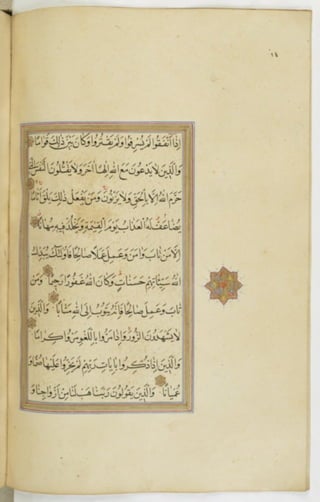 ١٤
إذا أنفقوا لم يسرفوا ولم يقتروا وكان بين ذلك قواما
والذين لا يدعون مع الله إلها آخر ولا يقتلون النفس التي
حرم الله إلا بالحق ولا يزنون ومن يفعل ذلك يلق أثاما
يضاعف له العذاب يوم القيمة ويخلد فيه مهانا
إلا من تاب وآمن وعمل عملا صالحا فأولئك يبدل
الله سيئاتهم حسنات وكان الله غفورا رحيما ومن
تاب وعمل صالحا فإنه يتوب إلى الله متابا والذين
لا يشهدون الزور وإذا مروا باللغو مروا كراما
والذين إذا ذكروا بآيات ربهم لم يخروا عليها صما و
عميانا والذين يقولون ربنا هب لنا من أزواجنا و